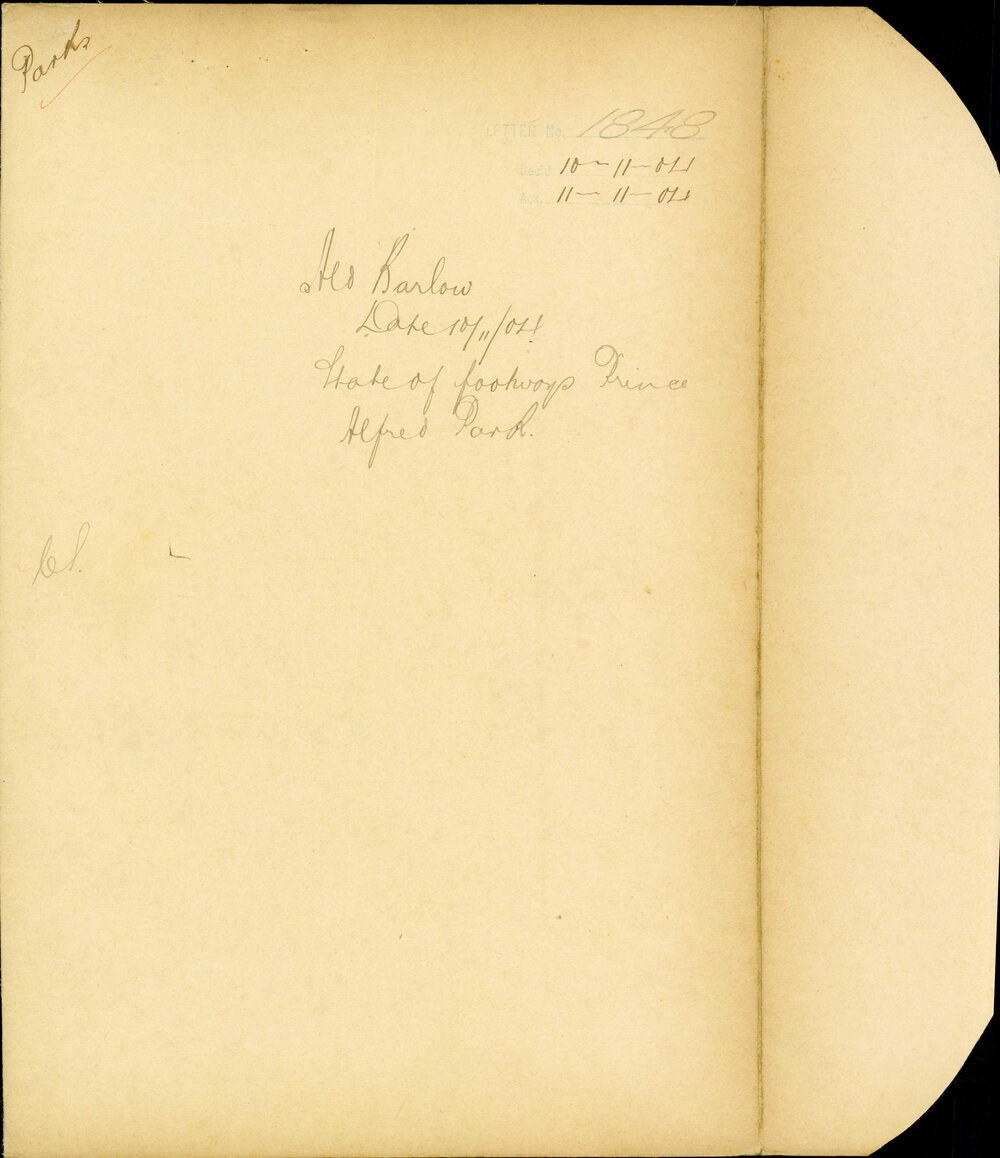 Parks
LETTER No. 1848
Rec'd 10-11-04
Ack. 11-11-04
Ald Barlow
Date 10/11/04
State of footways Prince
Alfred Park.